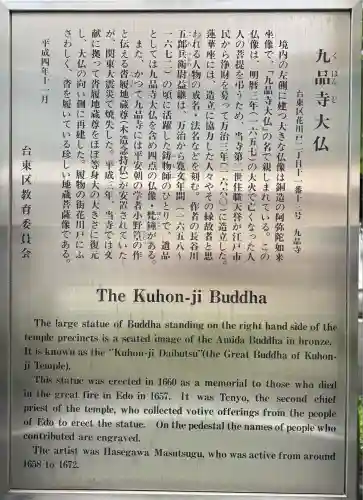 九品寺大仏
くほんじ
台東区花川戸二丁目十一番十三号 九品寺
境内の左側に建つ大きな仏像は銅造の阿弥陀如来
坐像で、「九品寺大仏」の名で親しまれている。この
仏像は、明暦三年(一六五七)の大火で亡くなった人
人の菩提を弔うため、当寺第二世住職天誉が江戸市
民から浄財を募って万治三年(一六六〇)に造立した。
蓮華座には、造立に協力した人々やその縁故者と思
われる人物の戒名・法名などを刻む。作者の長谷川
五郎兵衛尉益継は、万治から寛文年間(一六五八〜
一六七二)の頃に活躍した鋳物師のひとりで、遺品
としては九品寺大仏を含め四点の仏像・梵鐘がある。
また、かつて九品寺には平安朝の学者小野篁の作
と伝える沓履地蔵尊(木造念持仏)が安置されていた
が、関東大震災で焼失した。平成三年、当寺では文
献に拠って沓履地蔵尊をほぼ等身大の大きさに復元
し、大仏の向い側に再建した。履物の街花川戸にふ
さわしく、沓を履いている珍しい地蔵菩薩像である。
平成四年十一月
台東区教育委員会
The Kuhon-ji Buddha
The large statue of Buddha standing on the right hand side of the
temple precincts is a seated image of the Amida Buddha in bronze.
It is known as the "Kuhon-ji Daibutsu"(the Great Buddha of Kuhon-
ji Temple).
This statue was erected in 1660 as a memorial to those who died
in the great fire in Edo in 1657. It was Tenyo, the second chief
priest of the temple, who collected votive offerings from the people
of Edo to erect the statue. On the pedestal the names of people who
contributed are engraved.
The artist was Hasegawa Masutsugu, who was active from around
1658 to 1672.